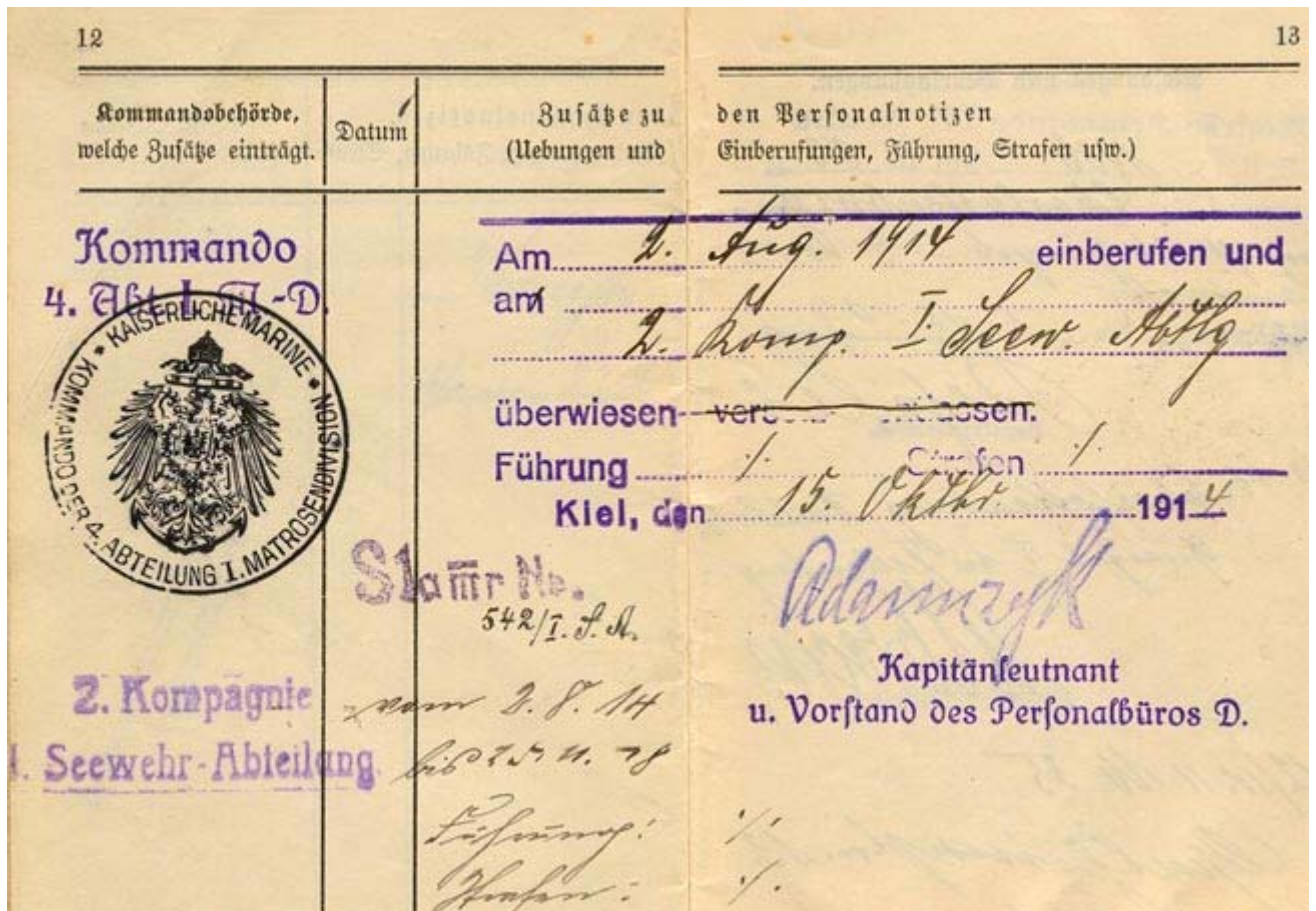 12
13
Kommandobehörde,
welche Zusätze einträgt.
Datum
Zusätze zu den Personalnotizen
(Uebungen und Einberufungen, Führung, Strafen usw.)
Kommando
4. Abt. I. -D.
KAISERLICHE MARINE • KOMMANDO DER 4. ABTEILUNG I. MATROSENDIVISION •
Am 2. Aug. 1914 einberufen und
am
2. Komp. I. Seew. Abtlg
überwiesen
Führung ./. Strafen ./.
Kiel, den 15. Oktbr. 1914
Adamczyk
Kapitänleutnant
u. Vorstand des Personalbüros D.
Stammr No.
542/I. S. A.
2. Kompagnie
I. Seewehr-Abteilung
vom 2. 8. 14
bis 25. 11. 18
Führung: ./.
Strafen: ./.